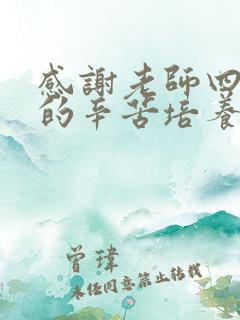 感謝老師四
的辛苦培養
曾瑋
未經同意禁止轉載